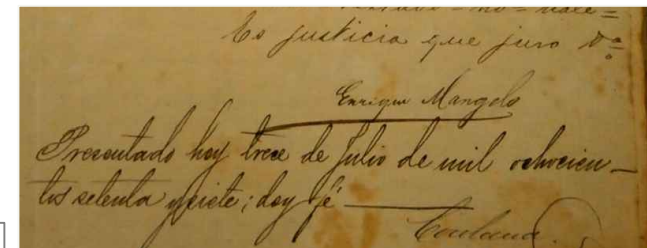 no = vale =
Es justicia que juro &ª
Enrique Mangels
Presentado hoy trece de Julio de mil ochocien-
tos setenta y siete; doy fé